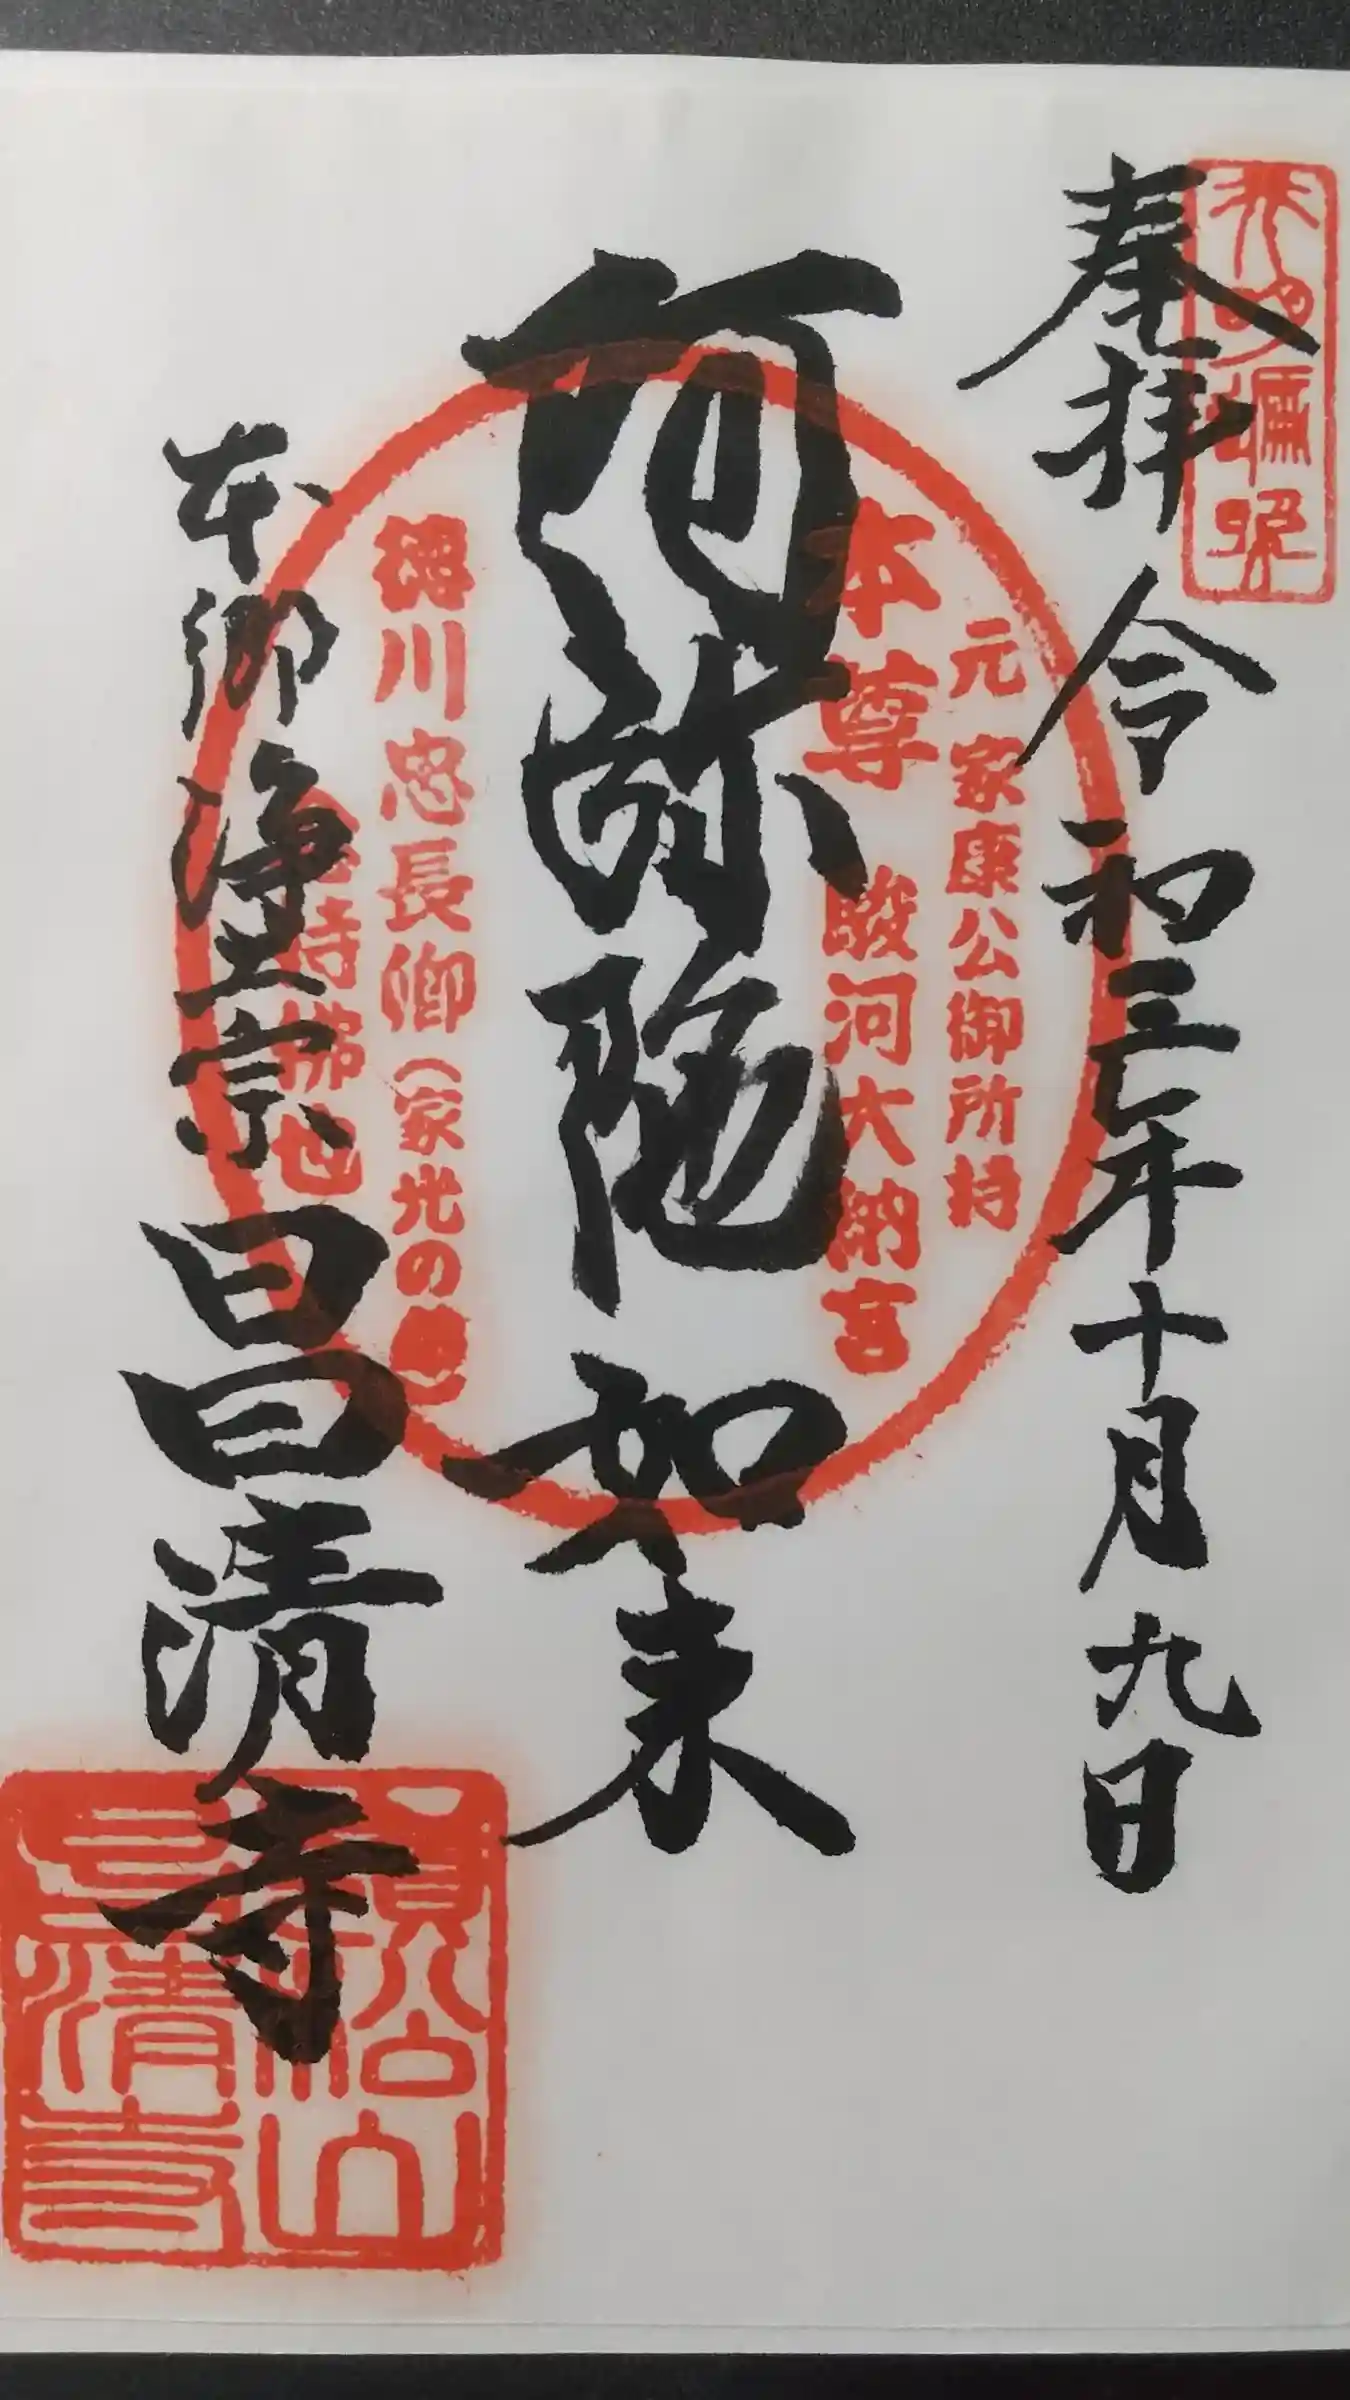 奉拝
令和三年十月九日
阿弥陀如来
元家康公御所持
本尊 駿河大納言
徳川忠長卿(家光の
持佛也
本郷
浄土宗
昌清寺
願松山
昌清寺